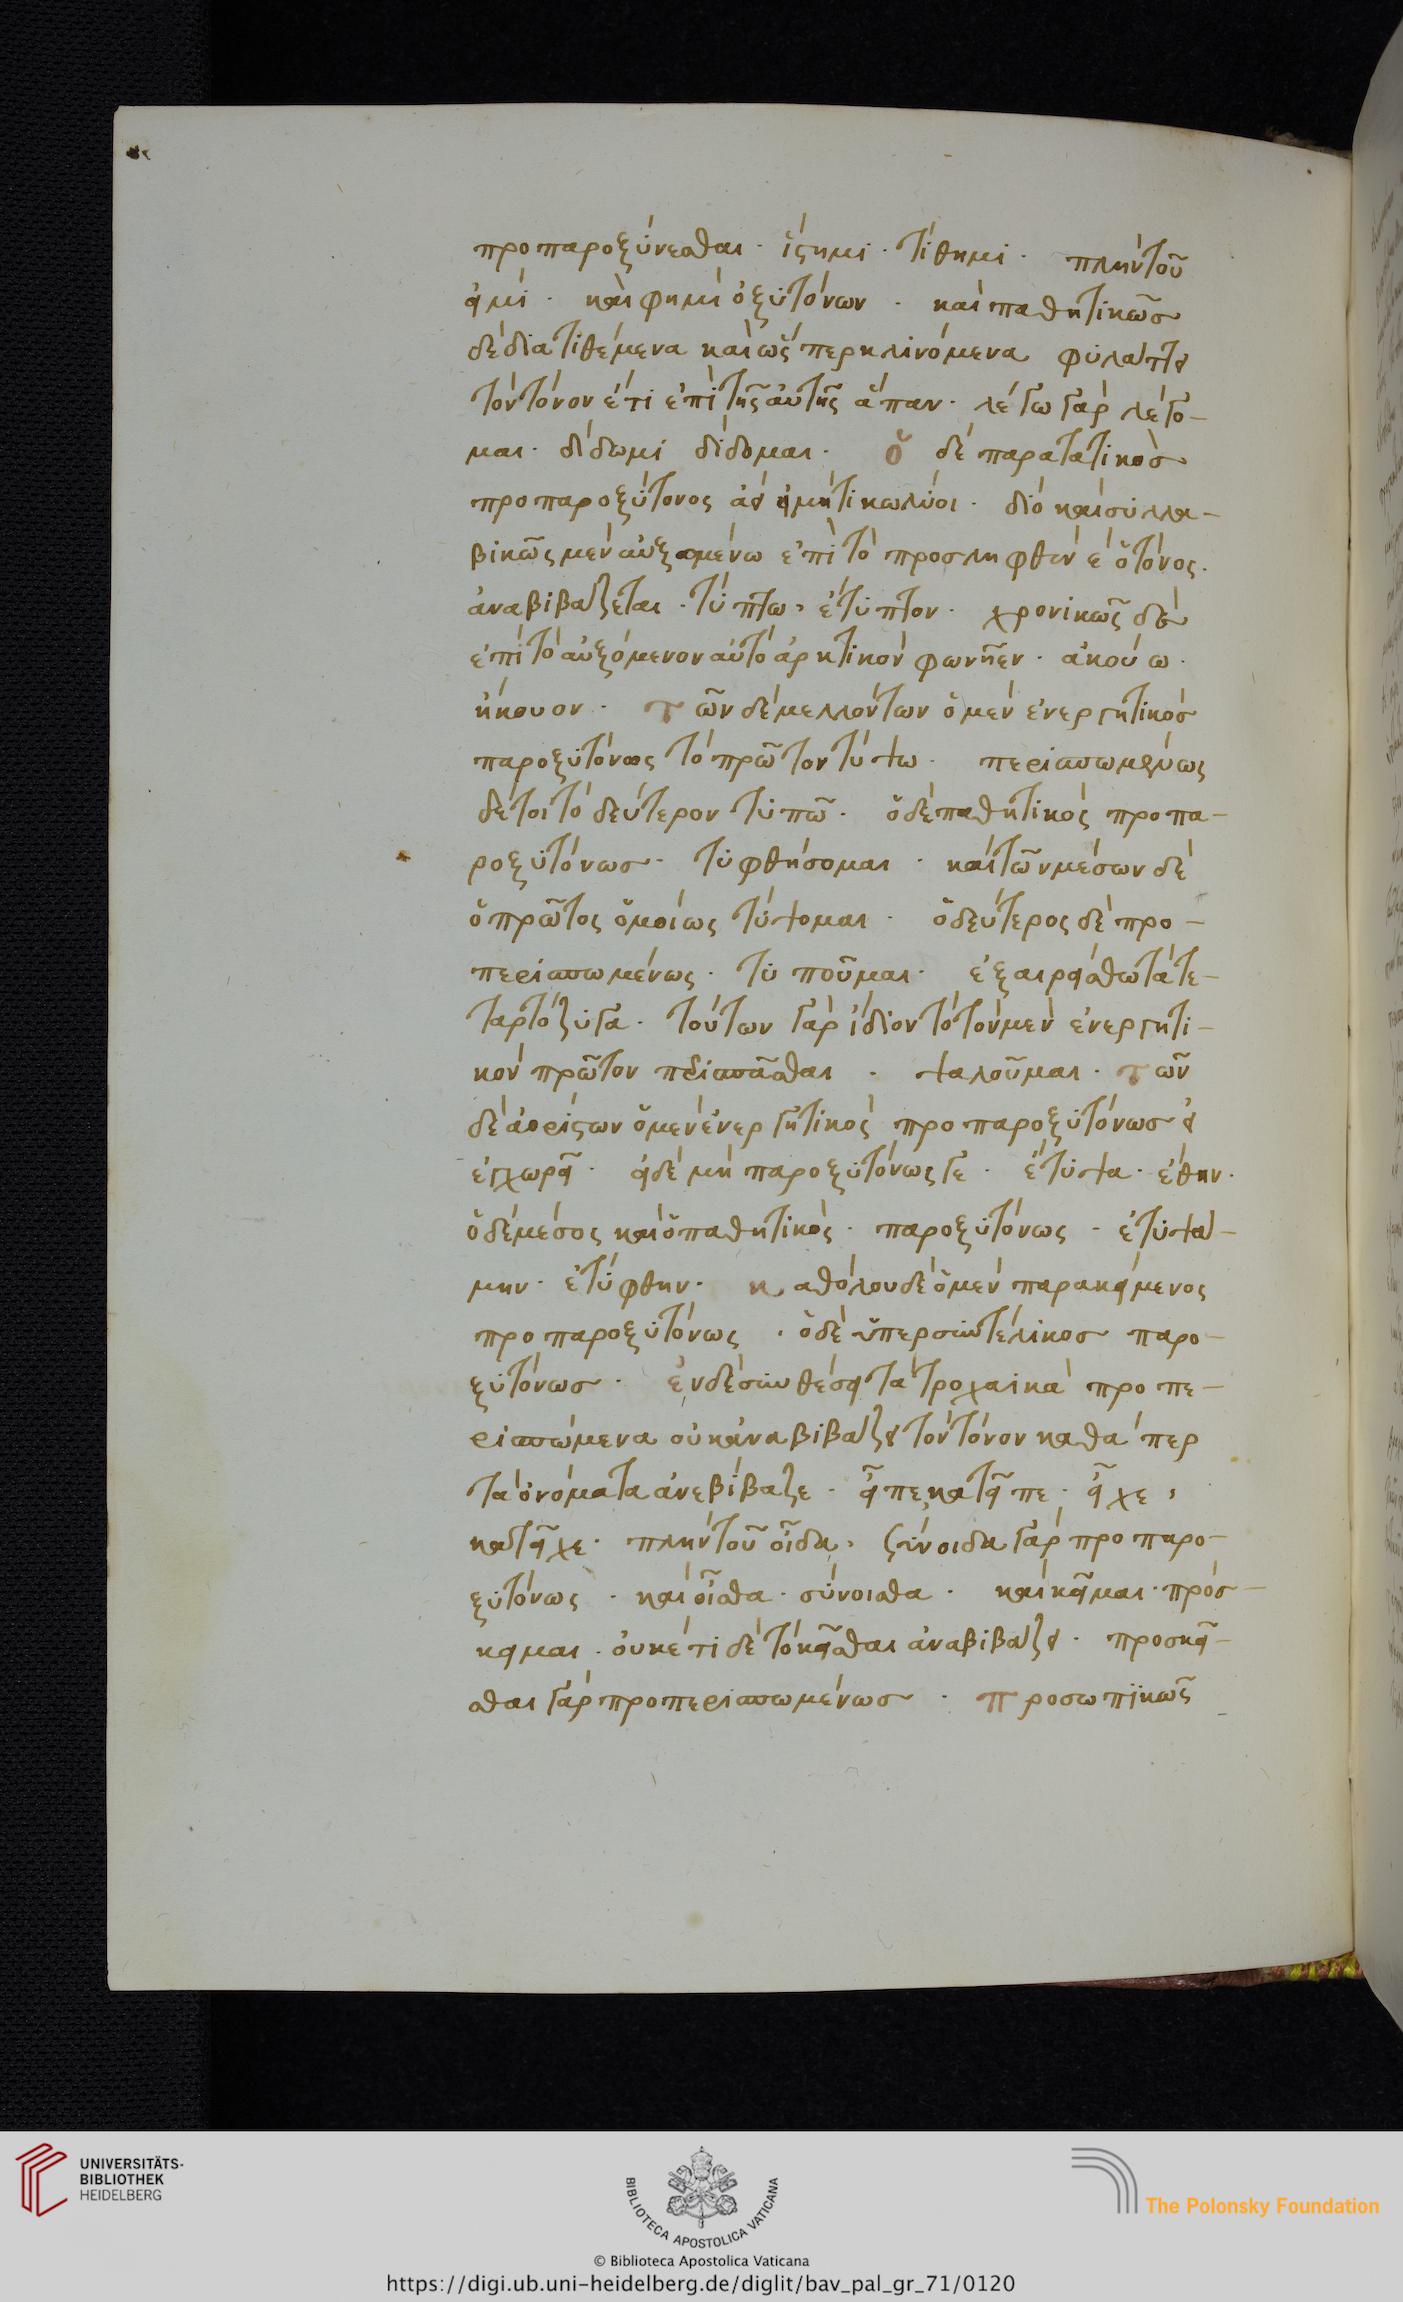 προπαροξύνεσθαι · ἵστημι · τίθημι · πλὴν τοῦ
εἰμὶ · καὶ φημὶ ὀξυτόνων · καὶ παθητικῶσ
δὲ διατιθέμενα καὶ ὥσπερ κλινόμενα φυλάττει
τὸν τόνον ἔτι ἐπὶ τῆς αὐτῆς ἅπαν · λέγω γὰρ λέγο-
μαι · δίδωμι δίδομαι · Ὁ δὲ παρατατικὸσ
προπαροξύτονος ἀεὶ εἰ μή τι κωλύοι · διὸ καὶ συλλα-
βικῶς μὲν αὐξομένω ἐπὶ τὸ προσληφθὲν ε ὁ τόνος ·
ἀναβιβάζεται · τύπτω, ἔτυπτον · χρονικῶς δὲ
ἐπὶ τὸ αὐξόμενον αὐτὸ ἀρκτικὸν φωνῆεν · ἀκούω ·
ἤκουον · τῶν δὲ μελλόντων ὁ μὲν ἐνεργητικὸσ
παροξυτόνως τὸ πρῶτον τύψω · περισπωμένως
δέ τοι τὸ δεύτερον τυπῶ · ὁ δὲ παθητικὸς προπα-
ροξυτόνωσ · τυφθήσομαι · καὶ τῶν μέσων δὲ
ὁ πρῶτος ὁμοίως τύψομαι · ὁ δεύτερος δὲ προ-
περισπωμένως · τυποῦμαι · ἐξαιρείσθω τὰ τε-
ταρτόζυγα · τούτων γὰρ ἴδιον τὸ τὸν μὲν ἐνεργητι-
κὸν πρῶτον περισπᾶσθαι · ψαλοῦμαι · τῶν
δὲ ἀορίστων ὁ μὲν ἐνεργητικὸς προπαροξυτόνωσ εἰ
ἐγχωρεῖ · εἰ δὲ μὴ παροξυτόνως γε · ἔτυψα · ἔθην ·
ὁ δὲ μέσος καὶ ὁ παθητικὸς · παροξυτόνως · ἐτυψά-
μην · ἐτύφθην · καθόλου δὲ ὁ μὲν παρακείμενος
προπαροξυτόνως · ὁ δὲ ὑπερσυντέλικοσ παρο-
ξυτόνωσ · ἐν δὲ συνθέσει τὰ τροχαικὰ προπε-
ρισπώμενα οὐκ ἀναβιβάζει τὸν τόνον καθάπερ
τὰ ὀνόματα ἀνεβίβαζε · εἶπε κατεῖπε · εἶχε,
κατεῖχε · πλὴν τοῦ οἶδα, σύνοιδα γὰρ προπαρο-
ξυτόνως · καὶ οἶσθα · σύνοισθα · καὶ κεῖμαι · πρόσ-
κειμαι · οὐκέτι δὲ τὸ κεῖσθαι ἀναβιβάζει · προσκεῖ-
σθαι γὰρ προπερισπωμένωσ · Προσωπικῶς
UNIVERSITÄTS-
BIBLIOTHEK
HEIDELBERG
BIBLIOTECA APOSTOLICA VATICANA
The Polonsky Foundation
© Biblioteca Apostolica Vaticana
https://digi.ub.uni-heidelberg.de/diglit/bav_pal_gr_71/0120